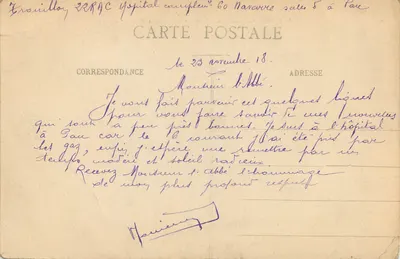 22 RAC Hôpital complem 60 Navarre salle 5 à Pau
CARTE POSTALE
le 23 novembre 18.
CORRESPONDANCE
ADRESSE
Monsieur l'Abbé
Je vous fais parvenir ces quelques lignes
pour vous faire savoir de mes nouvelles
qui sont à peu près bonnes. Je suis à l'hôpital
à Pau car le 6 courant j'ai été pris par
les gaz, enfin j'espère me remettre par un
temps modéré et soleil radieux.
Recevez Monsieur l'Abbé l'hommage
de mon plus profond respect